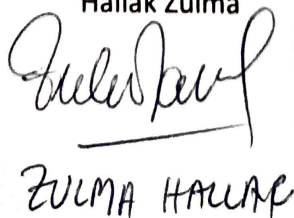 Hallak Zulma
ZULMA HALLAK